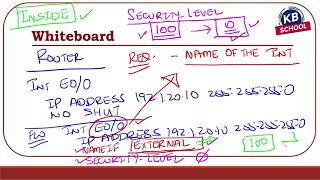 INSIDE
SECURITY-LEVEL
100 → 0
KB
SCHOOL
Whiteboard
ROUTER
REQ:- - NAME OF THE INT
INT E0/0
IP ADDRESS 192.1.20.10 255.255.255.0
NO SHUT
FW INT E0/0
IP ADDRESS 192.1.20.10 255.255.255.0
NAMEIF EXTERNAL
100
SECURITY-LEVEL 0